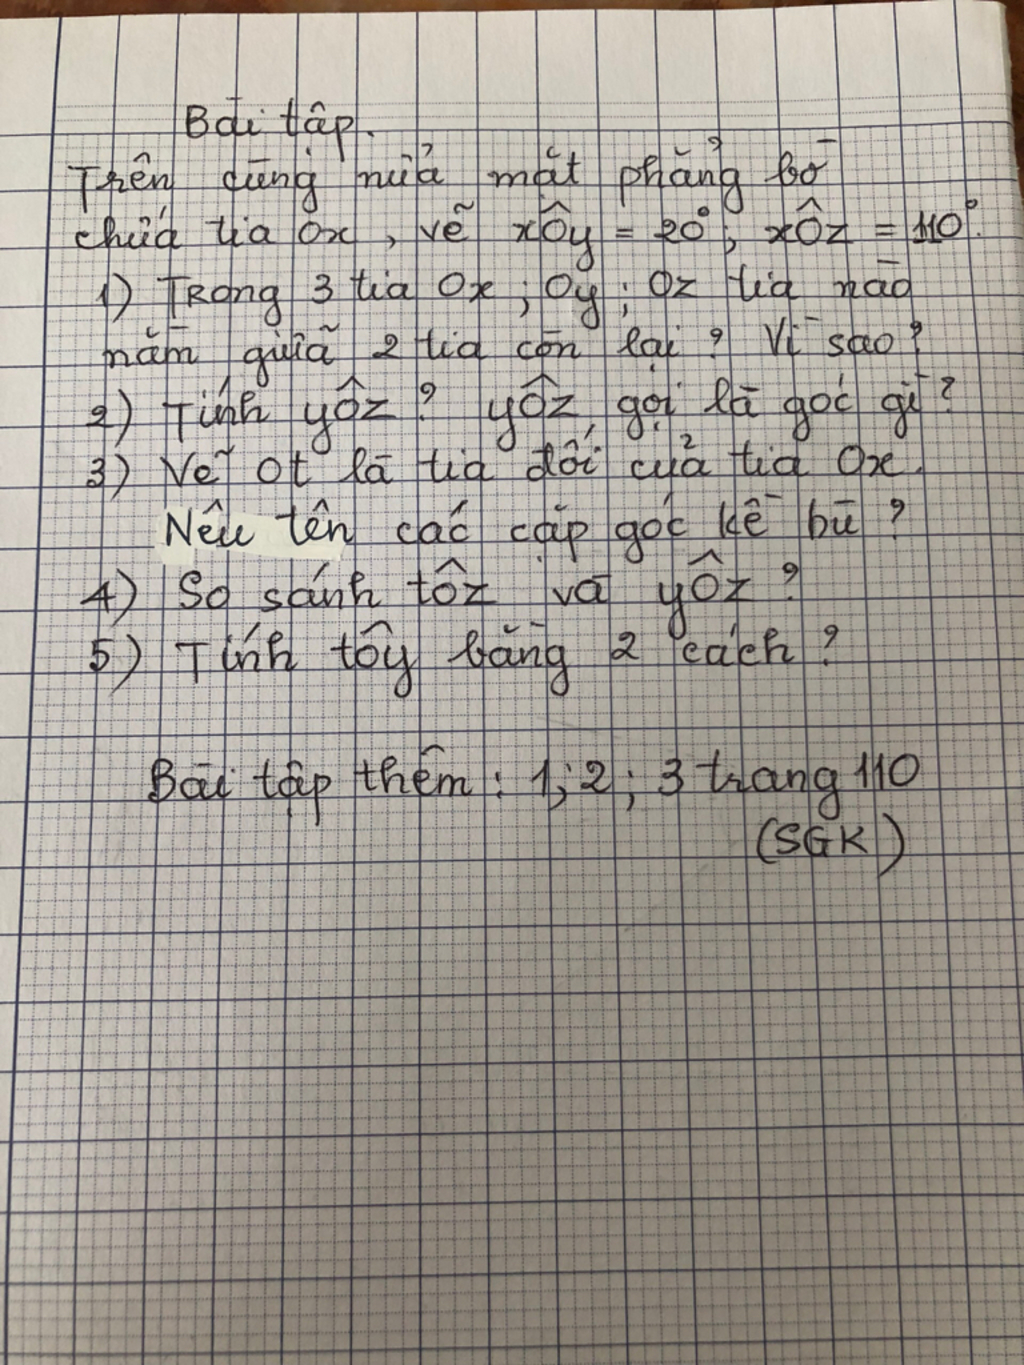 Bài tập.
Trên cùng nửa mặt phẳng bờ
chứa tia Ox, vẽ xÔy = 20°; xÔz = 110°.
1) Trong 3 tia Ox; Oy; Oz tia nào
nằm giữa 2 tia còn lại? Vì sao?
2) Tính yÔz? yÔz gọi là góc gì?
3) Vẽ Ot là tia đối của tia Ox.
Nêu tên các cặp góc kề bù?
4) So sánh tÔz và yÔz?
5) Tính tÔy bằng 2 cách?
Bài tập thêm: 1; 2; 3 trang 110
(SGK)